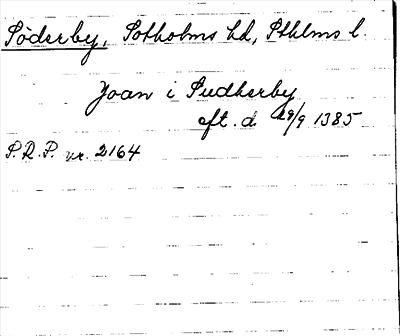 Söderby, Sotholms hd, Sthlms l.
Joan i Sudherby
eft. d 29/9 1385
S.R.P. nr. 2164